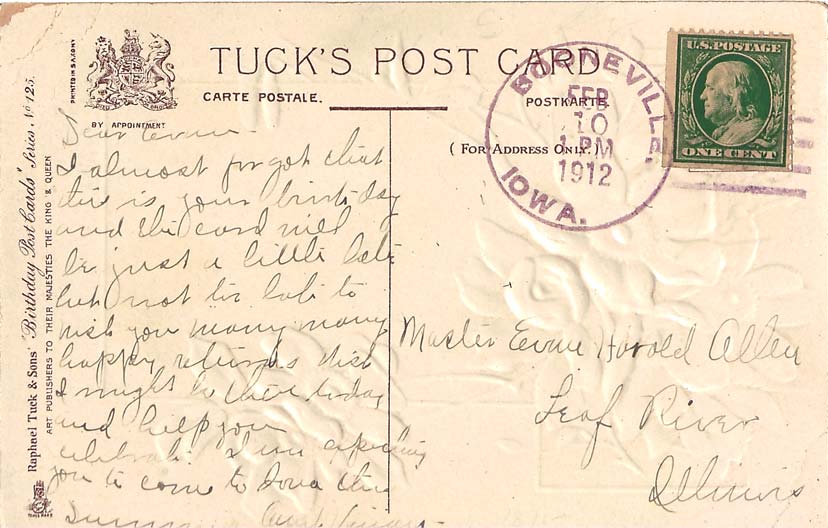 TUCK'S POST CARD
CARTE POSTALE.
POSTKARTE.
( FOR ADDRESS ONLY. )
BY APPOINTMENT
PRINTED IN SAXONY
Raphael Tuck & Sons' "Birthday Post Cards" Series. No 125.
ART PUBLISHERS TO THEIR MAJESTIES THE KING & QUEEN
BOONEVILLE,
FEB
10
1 PM
1912
IOWA.
U.S. POSTAGE
ONE CENT
Dear
I almost forgot that
this is your birthday
and the card will
be just a little late
but not too late to
wish you many many
happy returns wish
I might be there today
and help you
celebrate I am expecting
you to come to Iowa this
summer
Master Harold Allen
Leaf River
Illinois